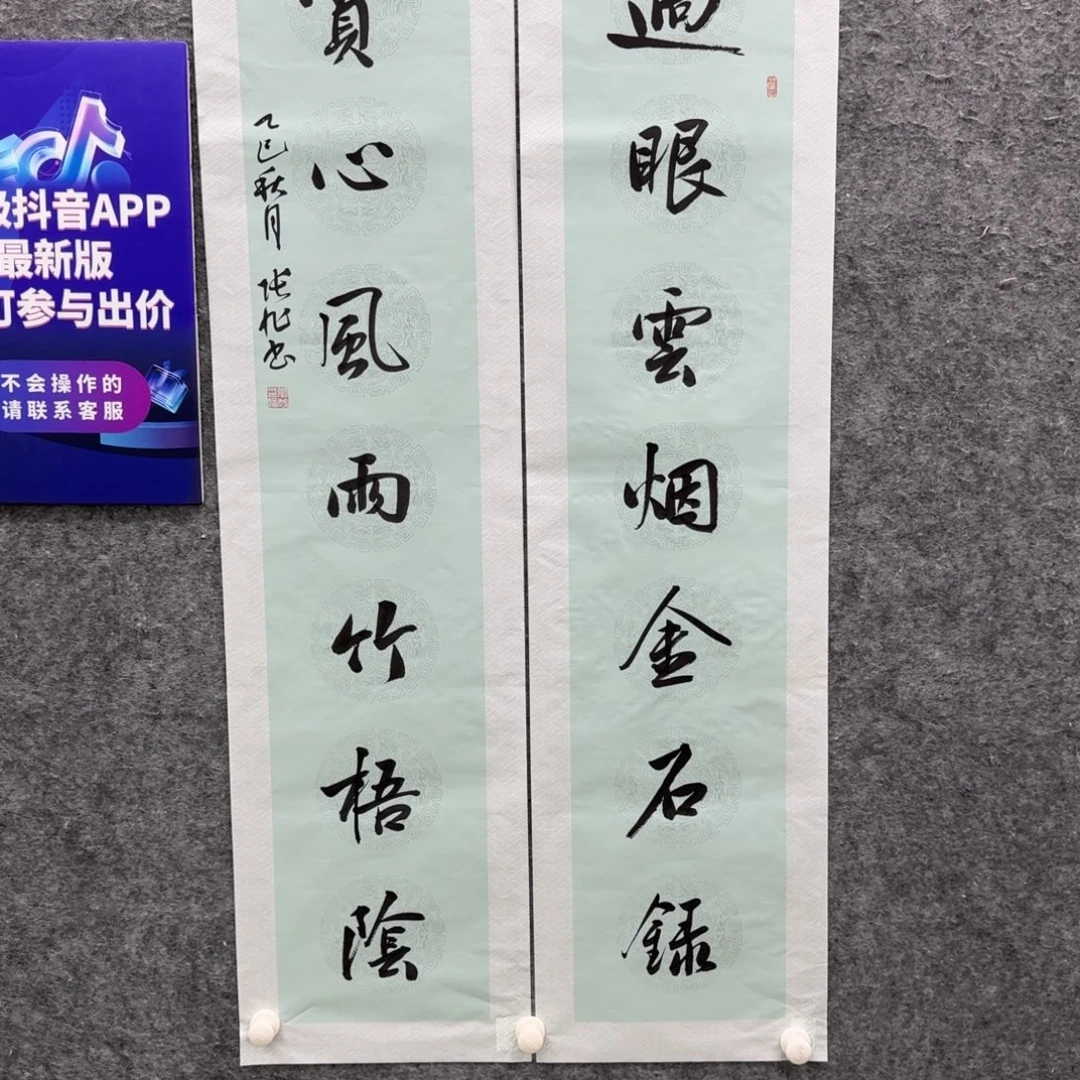 過眼雲烟金石録
賞心風雨竹梧陰
乙巳秋月
级抖音APP
最新版
可参与出价
不会操作的
请联系客服